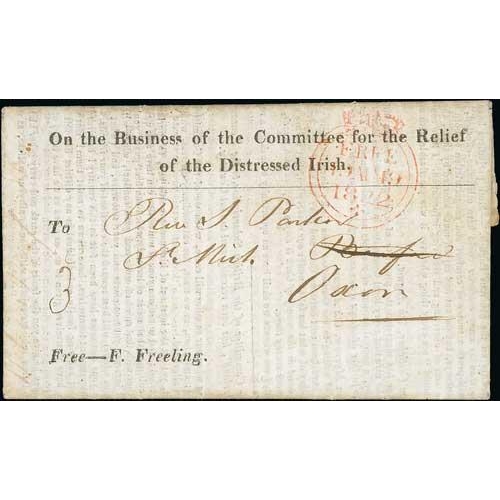 On the Business of the Committee for the Relief
of the Distressed Irish.
FREE
1822
To Rev J. Parker
St. Mich.
Oxon
3
Free—F. Freeling.